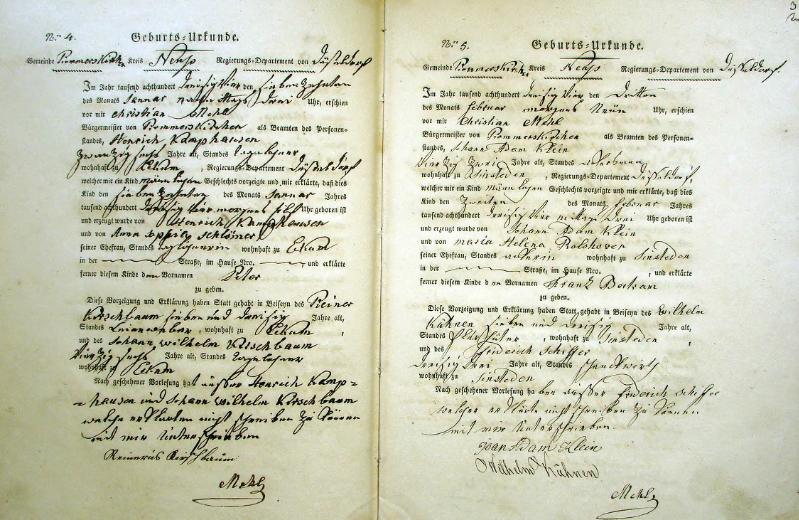 No. 4. Geburts-Urkunde.
Gemeinde Rommerskirchen Kreis Neuß Regierungs-Departement von Düsseldorf
Im Jahr tausend achthundert dreisig vier den siebenzehnten
des Monats Januar nachmittags drei Uhr, erschien
vor mir Christian Mehl
Bürgermeister von Rommerskirchen als Beamten des Personen-
standes, Henrich Kamphausen
zwanzig sechs Jahre alt, Standes Tagelöhner
wohnhaft zu Eckum, Regierungs-Departement Düsseldorf
welcher mir ein Kind männlichen Geschlechts vorzeigte und mir erklärte, daß dies
Kind den siebenzehnten des Monats Januar Jahres
tausend achthundert dreisig vier morgens Uhr geboren ist
und erzeugt wurde von Henrich Kamphausen
und von Anna Schlömer
seiner Ehefrau, Standes wohnhaft zu Eckum
in der Straße, im Hause Nro. und erklärte
ferner diesem Kinde den Vornamen Peter
zu geben.
Diese Vorzeigung und Erklärung haben Statt gehabt in Beiseyn des Reiner
Kirschbaum sieben und dreisig Jahre alt,
Standes wohnhaft zu Eckum,
und des Johann Wilhelm Kirschbaum
sechs Jahre alt, Standes Tagelöhner
wohnhaft zu Eckum
Nach geschehener Vorlesung hat Henrich Kamp-
hausen und Johann Wilhelm Kirschbaum
welche erklärten nicht schreiben zu können
mit mir unterschrieben
Reinerus Kirschbaum
Mehl
No. 5. Geburts-Urkunde.
Gemeinde Rommerskirchen Kreis Neuß Regierungs-Departement von Düsseldorf.
Im Jahr tausend achthundert dreisig vier den dritten
des Monats Februar morgens Neun Uhr, erschien
vor mir Christian Mehl
Bürgermeister von Rommerskirchen als Beamten des Personen-
standes, Johann Adam Klein
vierzig zwei Jahre alt, Standes Ackerer
wohnhaft zu Sinsteden, Regierungs-Departement Düsseldorf,
welcher mir ein Kind männlichen Geschlechts vorzeigte und mir erklärte, daß dies
Kind den zweiten des Monats Februar Jahres
tausend achthundert dreisig vier mittags drei Uhr geboren ist
und erzeugt wurde von Johann Adam Klein
und von Maria Helena
seiner Ehefrau, Standes wohnhaft zu Sinsteden
in der Straße, im Hause Nro. und erklärte
ferner diesem Kinde den Vornamen Franz
zu geben.
Diese Vorzeigung und Erklärung haben Statt gehabt in Beiseyn des Wilhelm
Kühnen sieben und dreisig Jahre alt,
Standes wohnhaft zu Sinsteden,
und des Friderich Schiffer
dreisig drei Jahre alt, Standes
wohnhaft zu Sinsteden
Nach geschehener Vorlesung haben Friderich Schiffer
welcher erklärte nicht schreiben zu können
mit mir unterschrieben.
Joan Adam Klein
Wilhelm Kühnen
Mehl